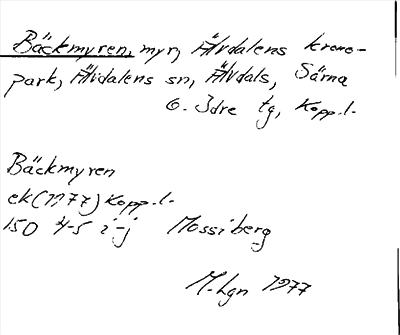 Bäckmyren, myr, Älvdalens krono-
park, Älvdalens sn, Älvdals, Särna
o. Idre tg, Kopp.l.
Bäckmyren
ek (1977) Kopp.l.
150 4-5 i-j Mossiberg
M. Lgn 1977